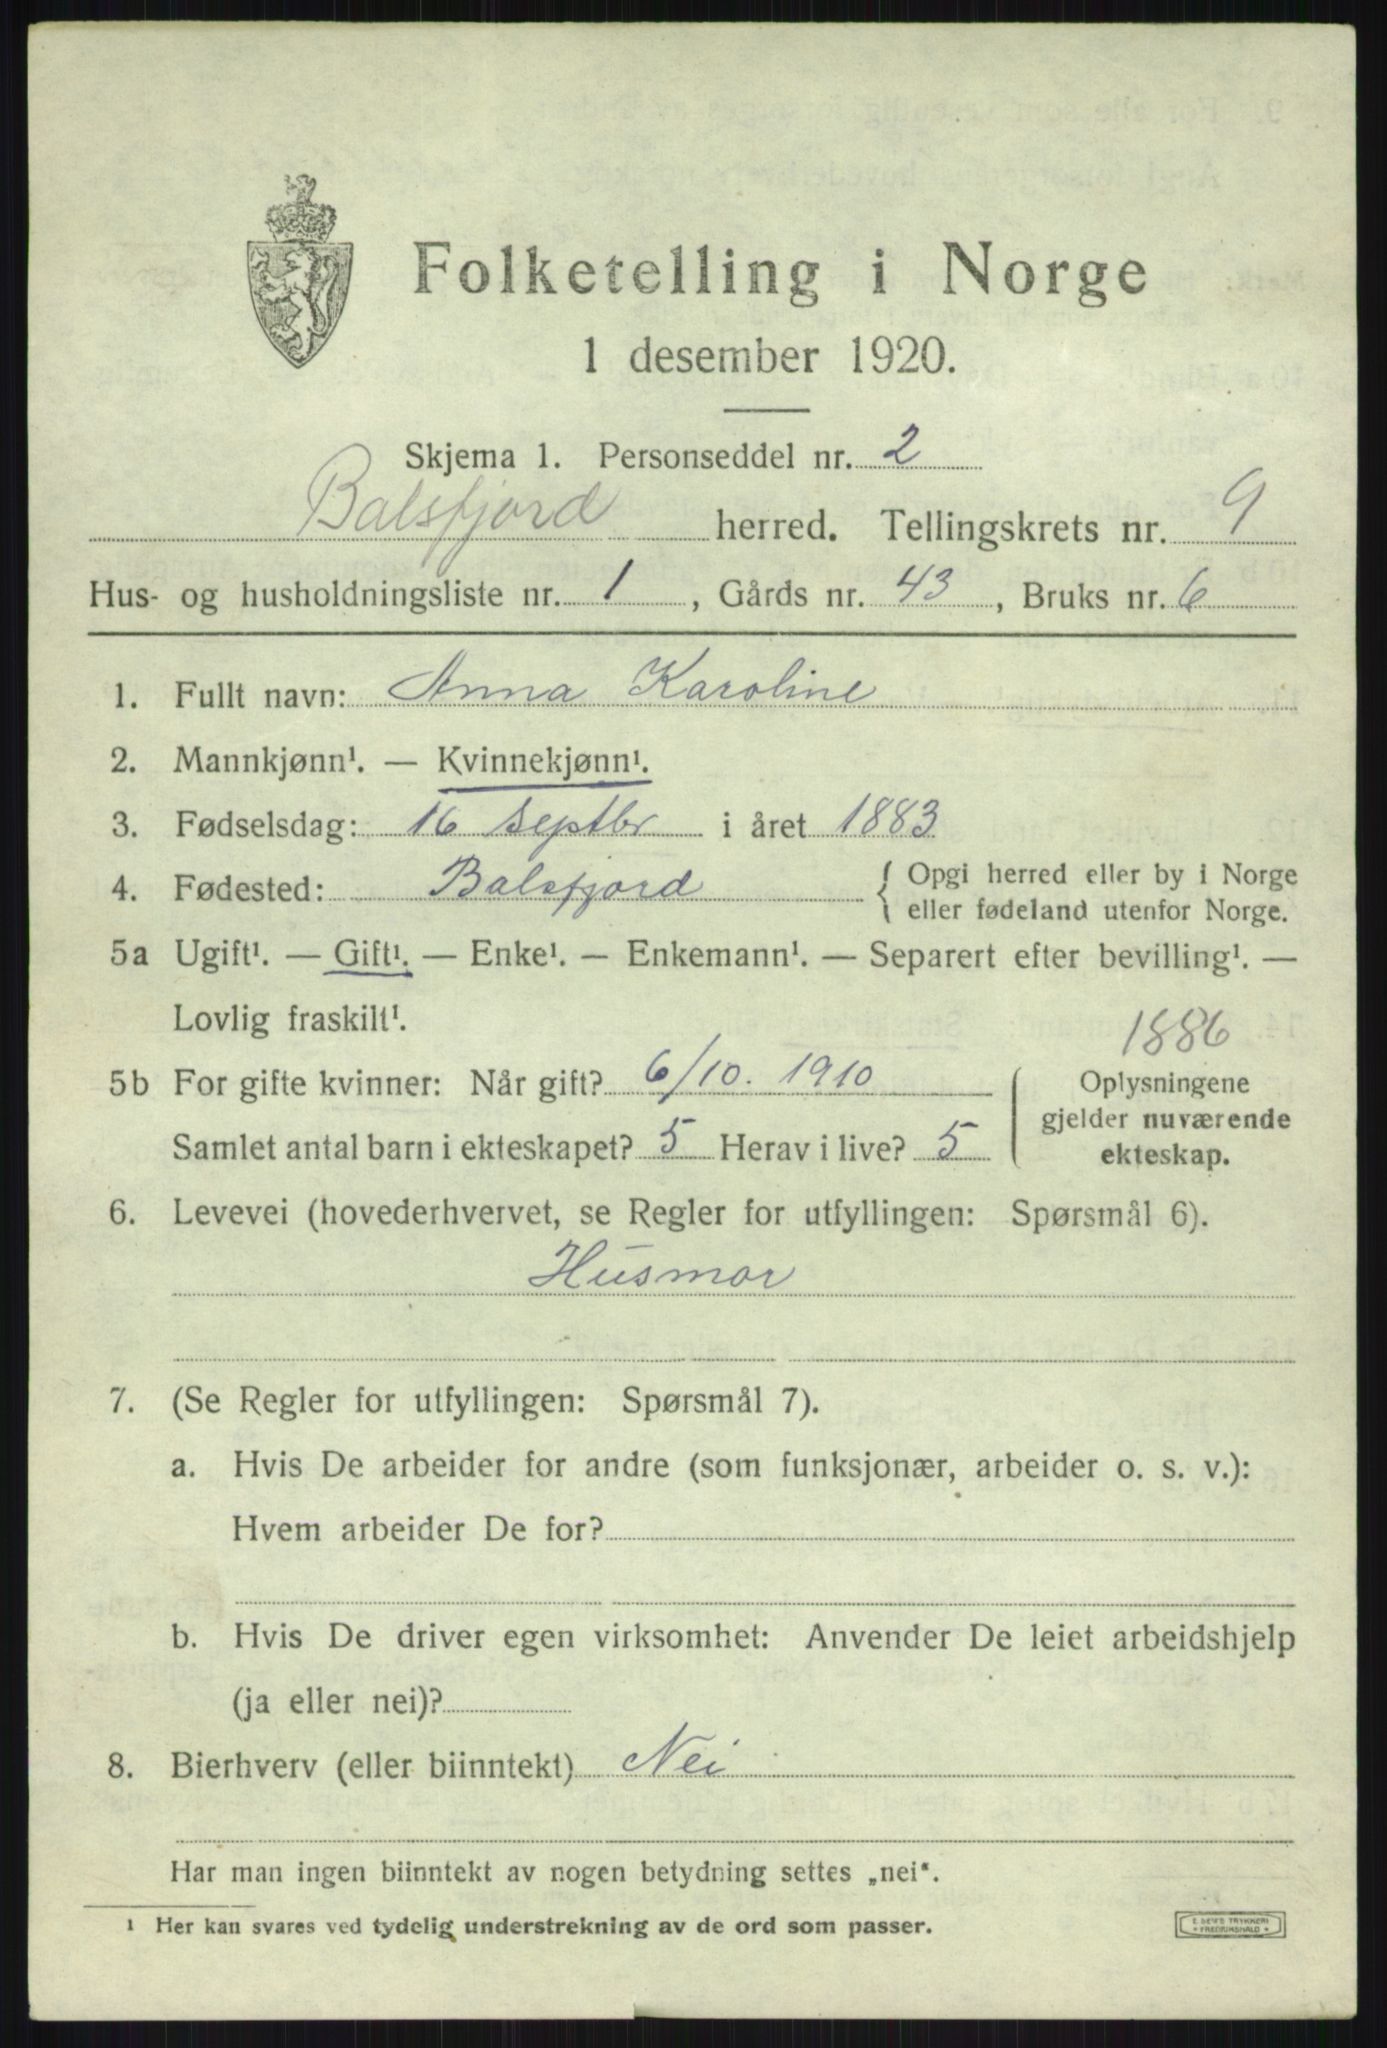 Folketelling i Norge
1 desember 1920.
Skjema 1. Personseddel nr. 2
Balsfjord herred. Tellingskrets nr. 9
Hus- og husholdningsliste nr. 1, Gårds nr. 43, Bruks nr. 6
1. Fullt navn: Anna Karoline
2. Mannkjønn¹. — Kvinnekjønn¹.
3. Fødselsdag: 16 septbr i året 1883
4. Fødested: Balsfjord { Opgi herred eller by i Norge
eller fødeland utenfor Norge.
5a Ugift¹. — Gift¹. — Enke¹. — Enkemann¹. — Separert efter bevilling¹. —
Lovlig fraskilt¹.
1886
5b For gifte kvinner: Når gift? 6/10. 1910
Samlet antal barn i ekteskapet? 5 Herav i live? 5
Oplysningene
gjelder nuværende
ekteskap.
6. Levevei (hovederhvervet, se Regler for utfyllingen: Spørsmål 6).
Husmor
7. (Se Regler for utfyllingen: Spørsmål 7).
a. Hvis De arbeider for andre (som funksjonær, arbeider o. s. v.):
Hvem arbeider De for?
b. Hvis De driver egen virksomhet: Anvender De leiet arbeidshjelp
(ja eller nei)?
8. Bierhverv (eller biinntekt) Nei
Har man ingen biinntekt av nogen betydning settes „nei“.
¹ Her kan svares ved tydelig understrekning av de ord som passer.
E. SEM'S TRYKKERI
FREDRIKSHALD